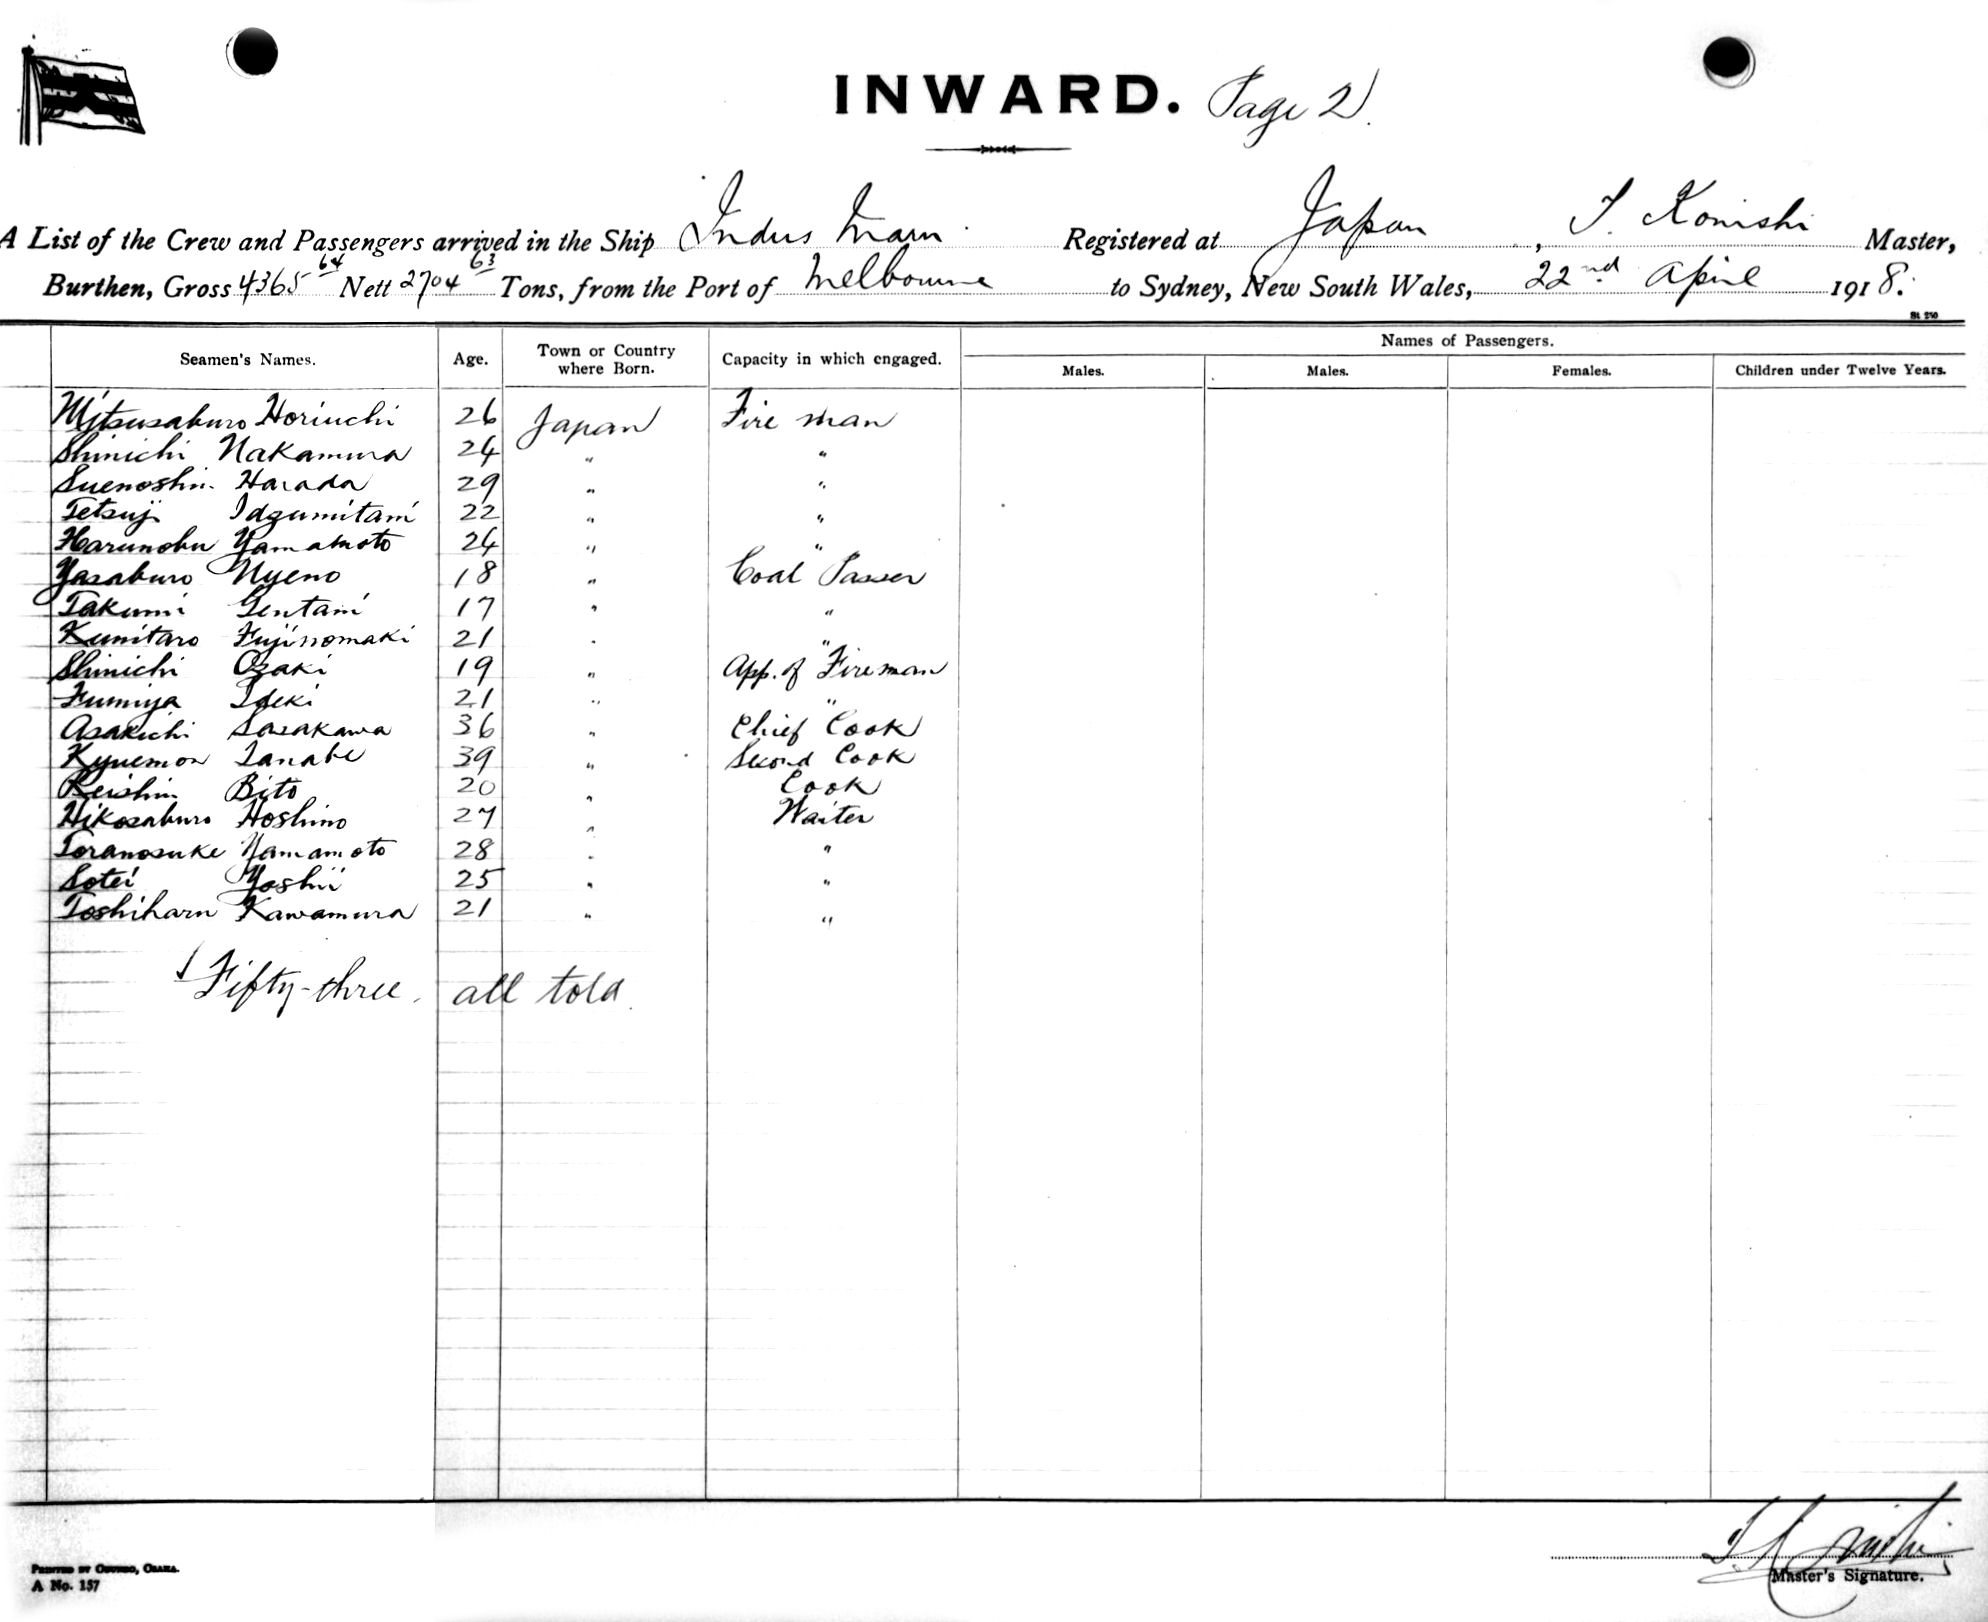 INWARD. Page 2.
A List of the Crew and Passengers arrived in the Ship Indus Maru Registered at Japan, T. Konishi Master,
Burthen, Gross 4365 64 Nett 2704 63 Tons, from the Port of Melbourne to Sydney, New South Wales, 22nd April 1918.
St. 250
Seamen's Names. Age. Town or Country where Born. Capacity in which engaged. Names of Passengers.
Males. Males. Females. Children under Twelve Years.
Mitsusaburo Horiuchi 26 Japan Fire man
Shinichi Nakamura 24 " "
Suenoshin Harada 29 " "
Tetsuji Idzumitani 22 " "
Harunobu Yamamoto 24 " "
Yasaburo Uyeno 18 " Coal Passer
Takumi Gentani 17 " "
Kunitaro Fujinomaki 21 " "
Shinichi Ozaki 19 " App. of Fireman
Fumiya Ideki 21 " "
Asakichi Sasakawa 36 " Chief Cook
Kyuemon Tanabe 39 " Second Cook
Keishin Bito 20 " Cook
Hikosaburo Hoshino 27 " Waiter
Toranosuke Yamamoto 28 " "
Sotei Yoshii 25 " "
Toshiharu Kawamura 21 " "
Fifty-three all told.
T. Konishi
Master's Signature.
A No. 157